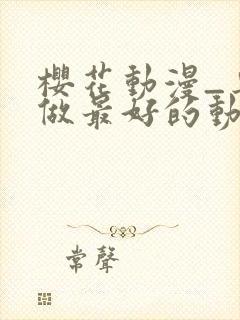 櫻花動漫_
做最好的動
常聲